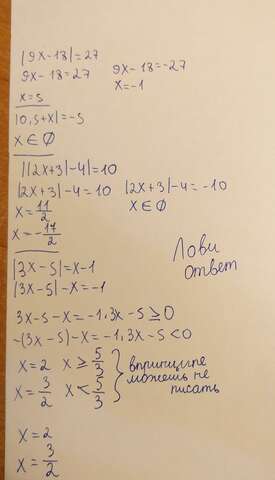 |9x-18|=27
9x-18=27   9x-18=-27
x=5   x=-1
|0,5+x|=-5
x∈∅
||2x+3|-4|=10
|2x+3|-4=10   |2x+3|-4=-10
x=11/2   x∈∅
x=-17/2
Лови
ответ
|3x-5|=x-1
|3x-5|-x=-1
3x-5-x=-1, 3x-5≥0
-(3x-5)-x=-1, 3x-5<0
x=2   x≥5/3
x=3/2   x<5/3
впринципе
можешь не
писать
x=2
x=3/2